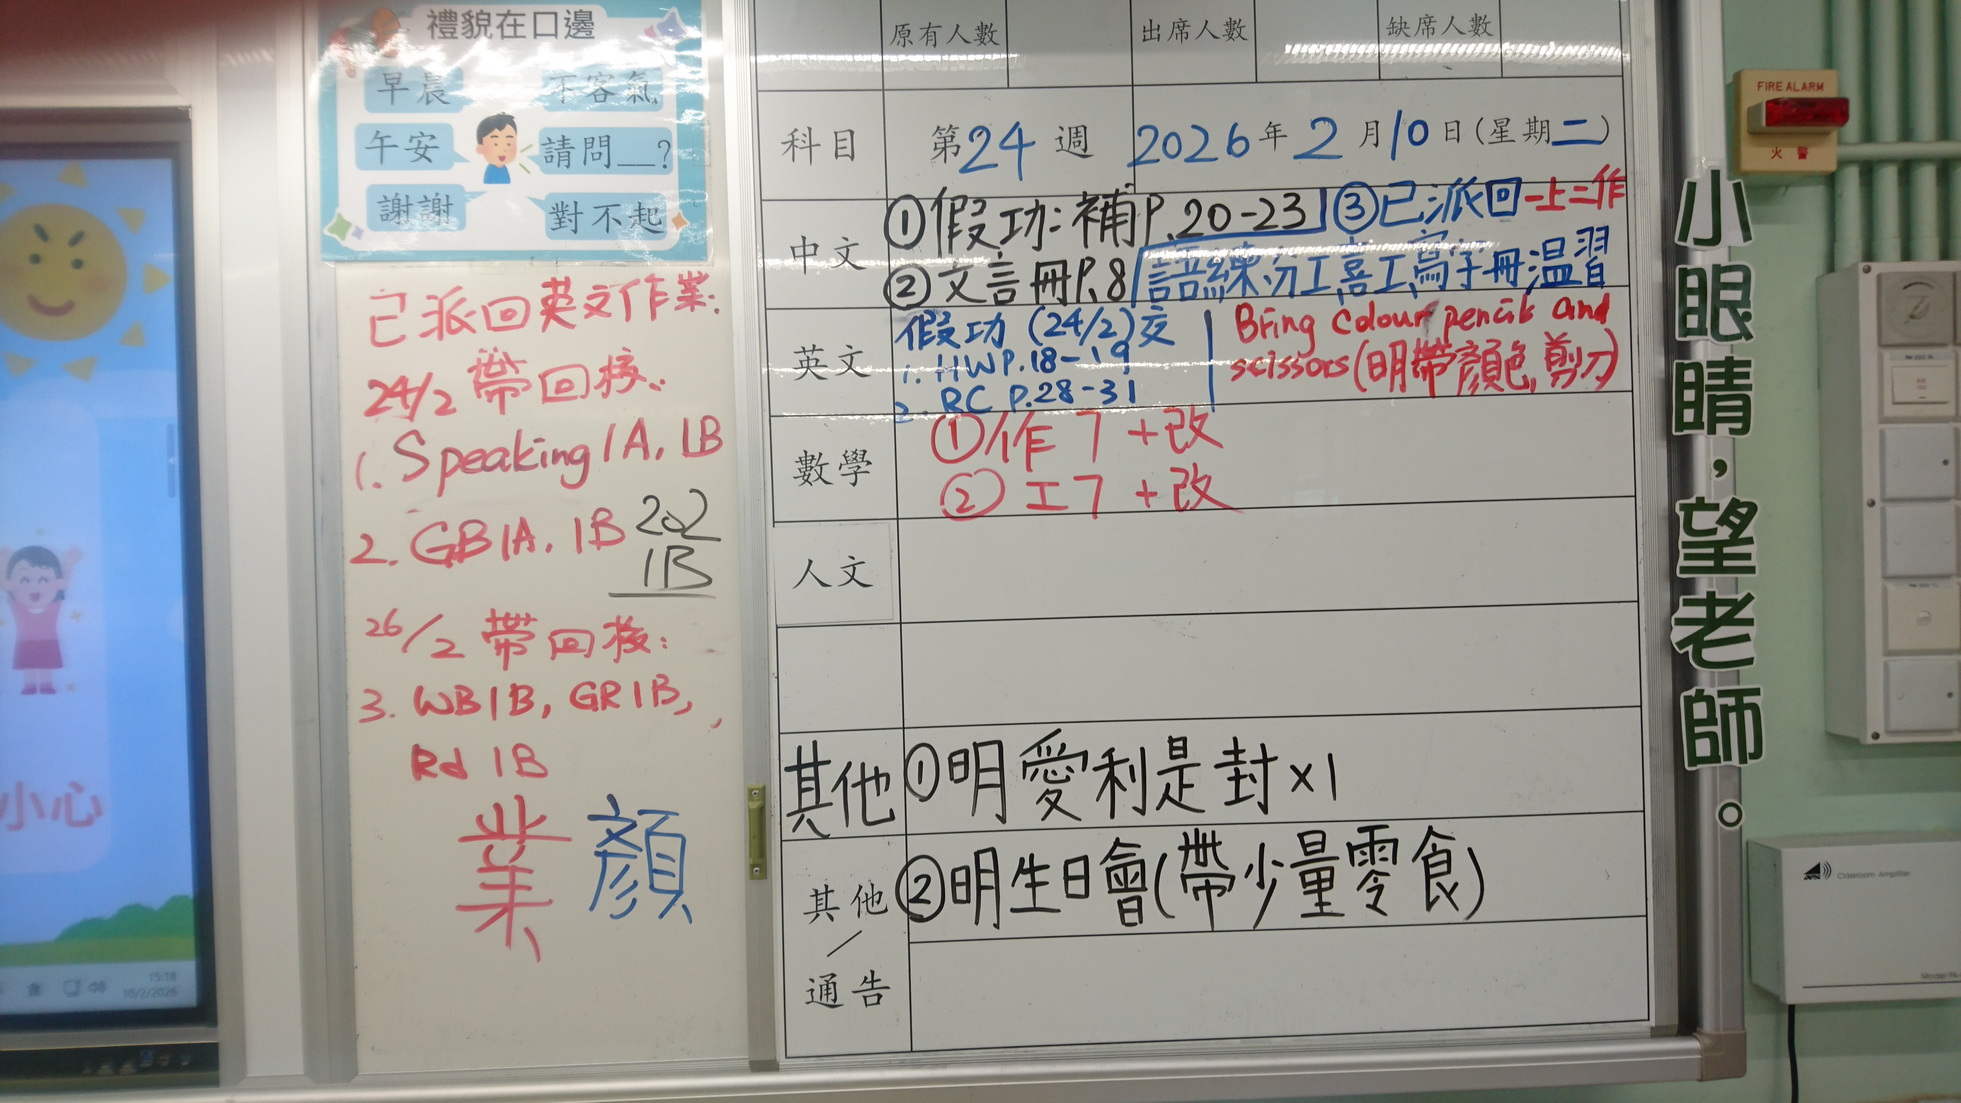 禮貌在口邊
早晨
不客氣
午安
請問__?
謝謝
對不起
已派回英文作業:
24/2 帶回校:
1. Speaking 1A, 1B
2. GB1A, 1B
202
1B
26/2 帶回校:
3. WB1B, GR1B,
Rd 1B
業 顏
小心
15:18
10/2/2026
原有人數 出席人數 缺席人數
科目 第24週 2026年2月10日(星期二)
中文 ①假功:補P.20-23 ③已派回一上二作
②文言冊P.8 語練,功工,喜工,寫字冊溫習
英文 假功 (24/2)交
1. HW P.18-19
2. RC P.28-31
Bring colour pencils and
scissors(明帶顏色,剪刀)
數學 ①作7 +改
②工7 +改
人文
其他 ①明愛利是封x1
其他/通告 ②明生日會(帶少量零食)
小眼睛，望老師。
FIRE ALARM
火警
Classroom Amplifier